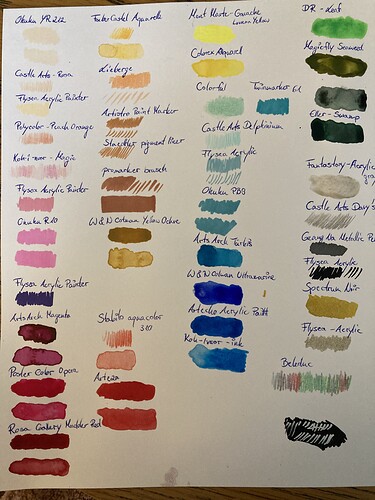 Otaku YR 222
Castle Arts - Rosa
Flysea Acrylic Painter
Polycolor - Peach Orange
Koh-i-noor - Magic
Flysea Acrylic Painter
Otaku R10
Flysea Acrylic Painter
Arts Arch Magenta
Poster Color Opera
Rosa Gallery Madder Red
Faber Castel Aquarelle
Lieberge
Artistro Paint Marker
Staedtler pigment liner
promarker brush
W&N Cotman Yellow Ochre
Stabilo aquacolor
310
Arteza
Mont Marte - Gouache
Lemon Yellow
Colorex Aquarel
Colorful
Twinmarker
Castle Arts Delphinium
Flysea Acrylic
Otaku
Arts Arch
W&N Cotman Ultramarine
Artesho Acrylic Paint
Koh-i-noor - ink
DR - Leaf
Magicfly Seaweed
Swamp
Fantastory - Acrylic
Castle Arts
Metallic
Flysea Acrylic
Spectrum Noir
Flysea - Acrylic